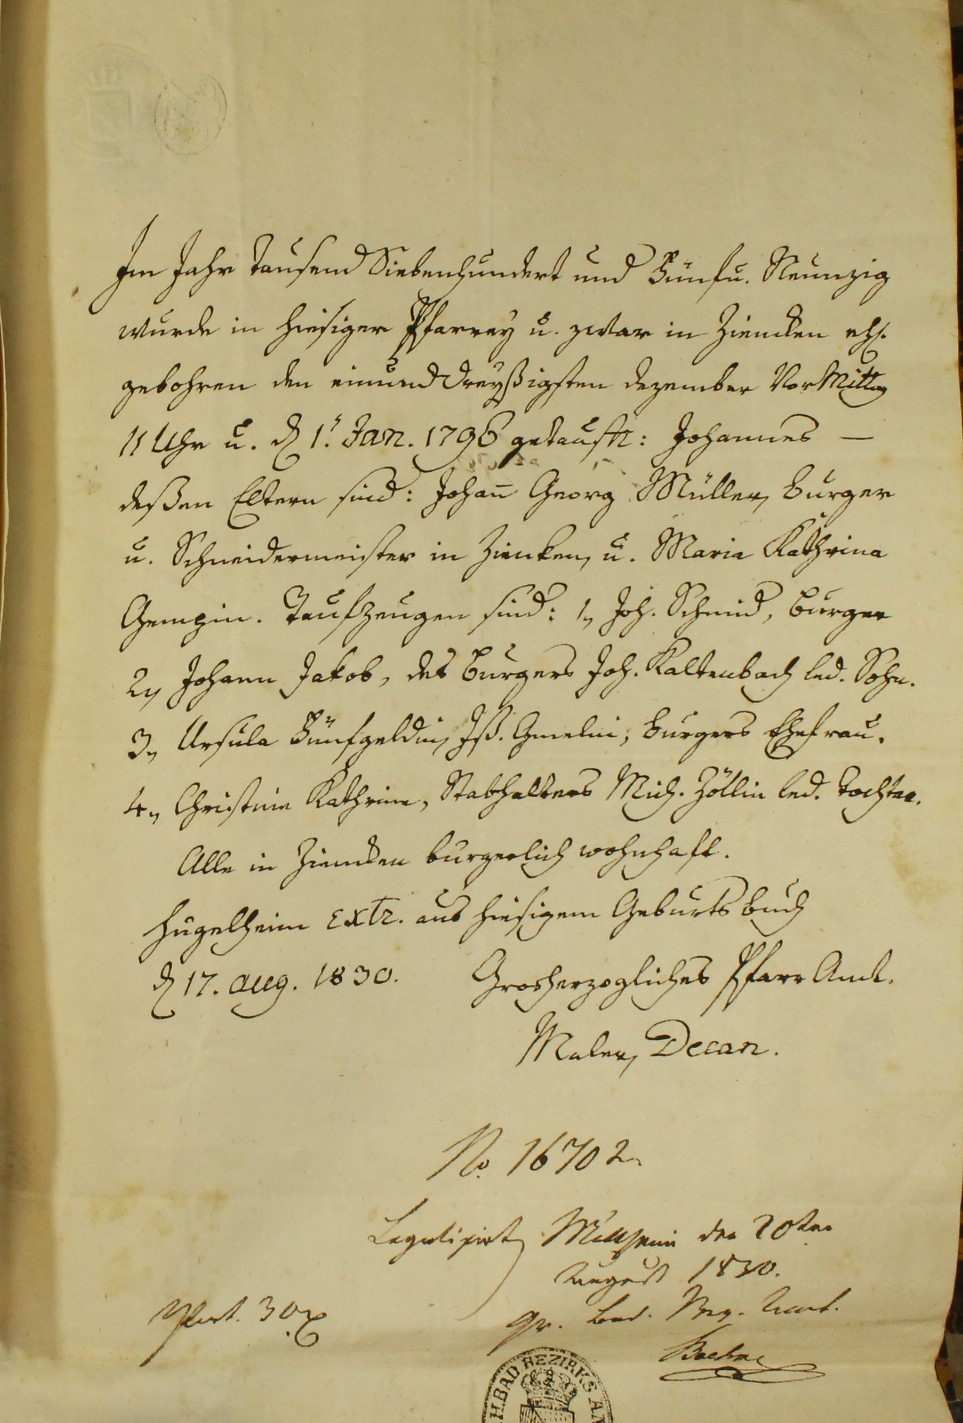 Im Jahr Tausend Siebenhundert und Fünfu. Neunzig
wurde in hiesiger Pfarrey u. zwar in Zienken ehl.
gebohren den einunddreyßigsten Dezember VorMittag
11 Uhr u. d 1. Jan. 1796 getauft: Johannes —
deßen Eltern sind: Johann Georg Müller, Burger
u. Schneidermeister in Zienken, u. Maria Kathrina
Gempin. Taufzeugen sind: 1, Joh. Schmid, Burger
2, Johann Jakob, des Burgers Joh. Kaltenbach led. Sohn.
3, Ursula Fünfgeldin, Jß. Gmelin, Burgers Ehefrau.
4, Christine Kathrine, Stabhalters Mich. Zöllin led. Tochter.
Alle in Zienken burgerlich wohnhaft.
Hügelheim Extr. aus hiesigem Geburts Buch
d 17. Aug. 1830. Grosherzogliches Pfarr Amt.
Maler, Decan.
No. 16702
Legalisirt Müllheim den 20ten
August 1830.
Gr. Bad. Bez. Amt.
30 x
H.BAD BEZIRKS AM